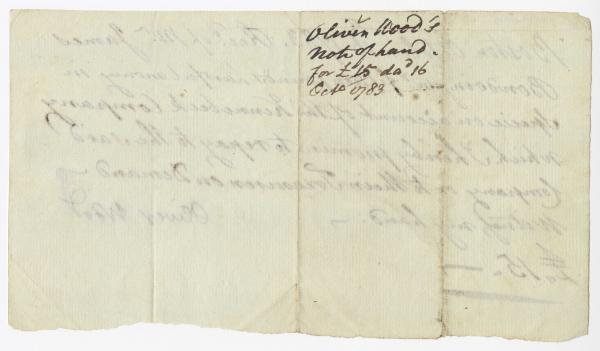 Oliver Wood's
Note of hand.
for £15 dad 16
Octo 1783
Boston Rec'd of Mr James
Bowdoin lawful money in
Specie on account of the Kennebeck Company
which I hereby promise to repay to the said
Company or to their Treasurer on Demand —
Witness my hand. —
Oliver Wood
£15. —